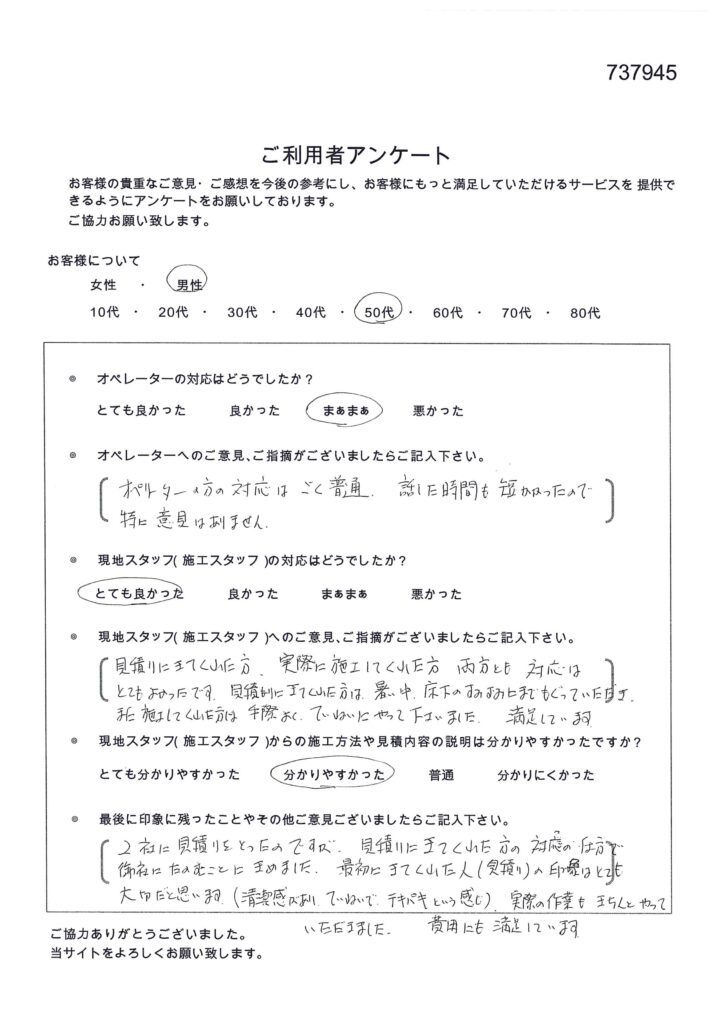 737945
ご利用者アンケート
お客様の貴重なご意見・ご感想を今後の参考にし、お客様にもっと満足していただけるサービスを 提供で
きるようにアンケートをお願いしております。
ご協力お願い致します。
お客様について
女性 ・ 男性
10代 ・ 20代 ・ 30代 ・ 40代 ・ 50代 ・ 60代 ・ 70代 ・ 80代
◎ オペレーターの対応はどうでしたか？
とても良かった 良かった まぁまぁ 悪かった
◎ オペレーターへのご意見、ご指摘がございましたらご記入下さい。
オペレーターの方の対応は ごく普通. 話した時間も 短かかったので
特に意見はありません.
◎ 現地スタッフ( 施工スタッフ )の対応はどうでしたか？
とても良かった 良かった まぁまぁ 悪かった
◎ 現地スタッフ( 施工スタッフ )へのご意見、ご指摘がございましたらご記入下さい。
見積りにきてくれた方、実際に施工してくれた方 両方とも 対応は
とてもよかったです. 見積りにきてくれた方は、暑い中、床下のすみずみにまでもぐっていただき.
また 施工してくれた方は 手際よく、ていねいにやって下さいました. 満足しています
◎ 現地スタッフ( 施工スタッフ )からの施工方法や見積内容の説明は分かりやすかったですか？
とても分かりやすかった 分かりやすかった 普通 分かりにくかった
◎ 最後に印象に残ったことやその他ご意見ございましたらご記入下さい。
2社に見積りをとったのですが、見積りにきてくれた方の 対応の仕方で
御社にたのむことに きめました. 最初にきてくれた人(見積り)の印象はとても
大切だと思います.(清潔感があり、ていねいで、テキパキという感じ). 実際の作業も きちんとやって
いただきました. 費用にも 満足しています
ご協力ありがとうございました。
当サイトをよろしくお願い致します。